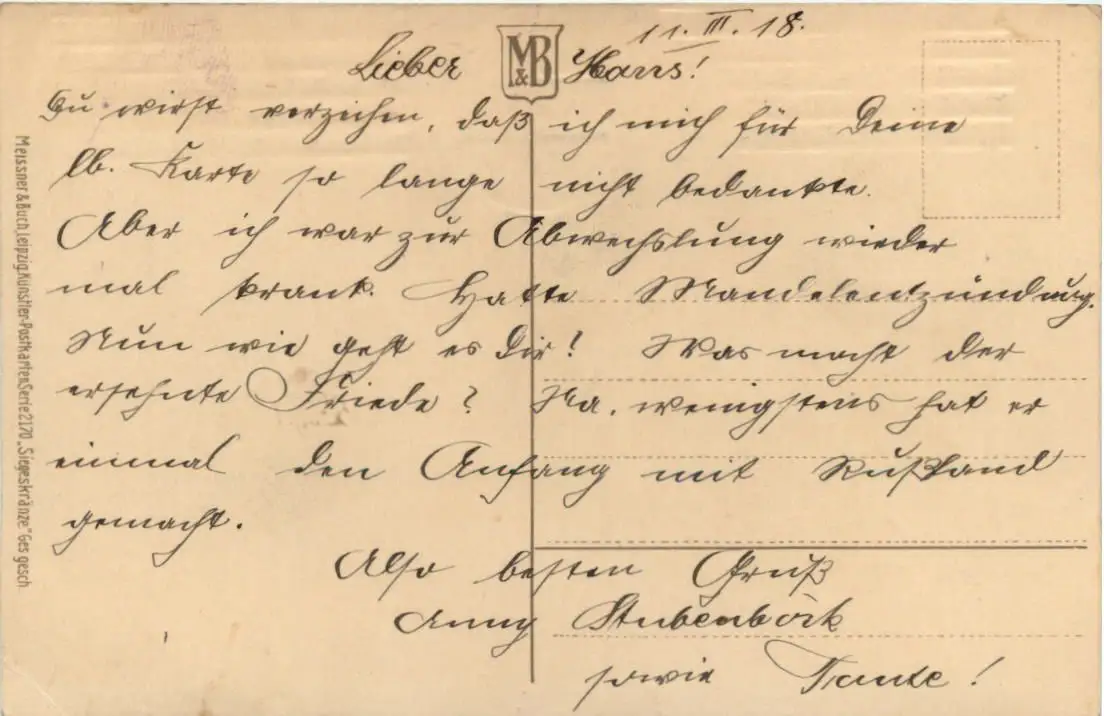 11. III. 18.
Lieber Hans!
M&B
Du wirst verzeihen, daß ich mich für Deine
lb. Karte so lange nicht bedankte.
Aber ich war zur Abwechslung wieder
mal krank. Hatte Mandelentzündung.
Nun wie geht es Dir! Was macht der
ersehnte Friede? Na, wenigstens hat er
einmal den Anfang mit Rußland
gemacht.
Also besten Gruß
Anny Stubenböck
sowie Tante!
Meissner & Buch, Leipzig, Künstler-Postkarten Serie 2170 „Siegeskränze." Ges gesch